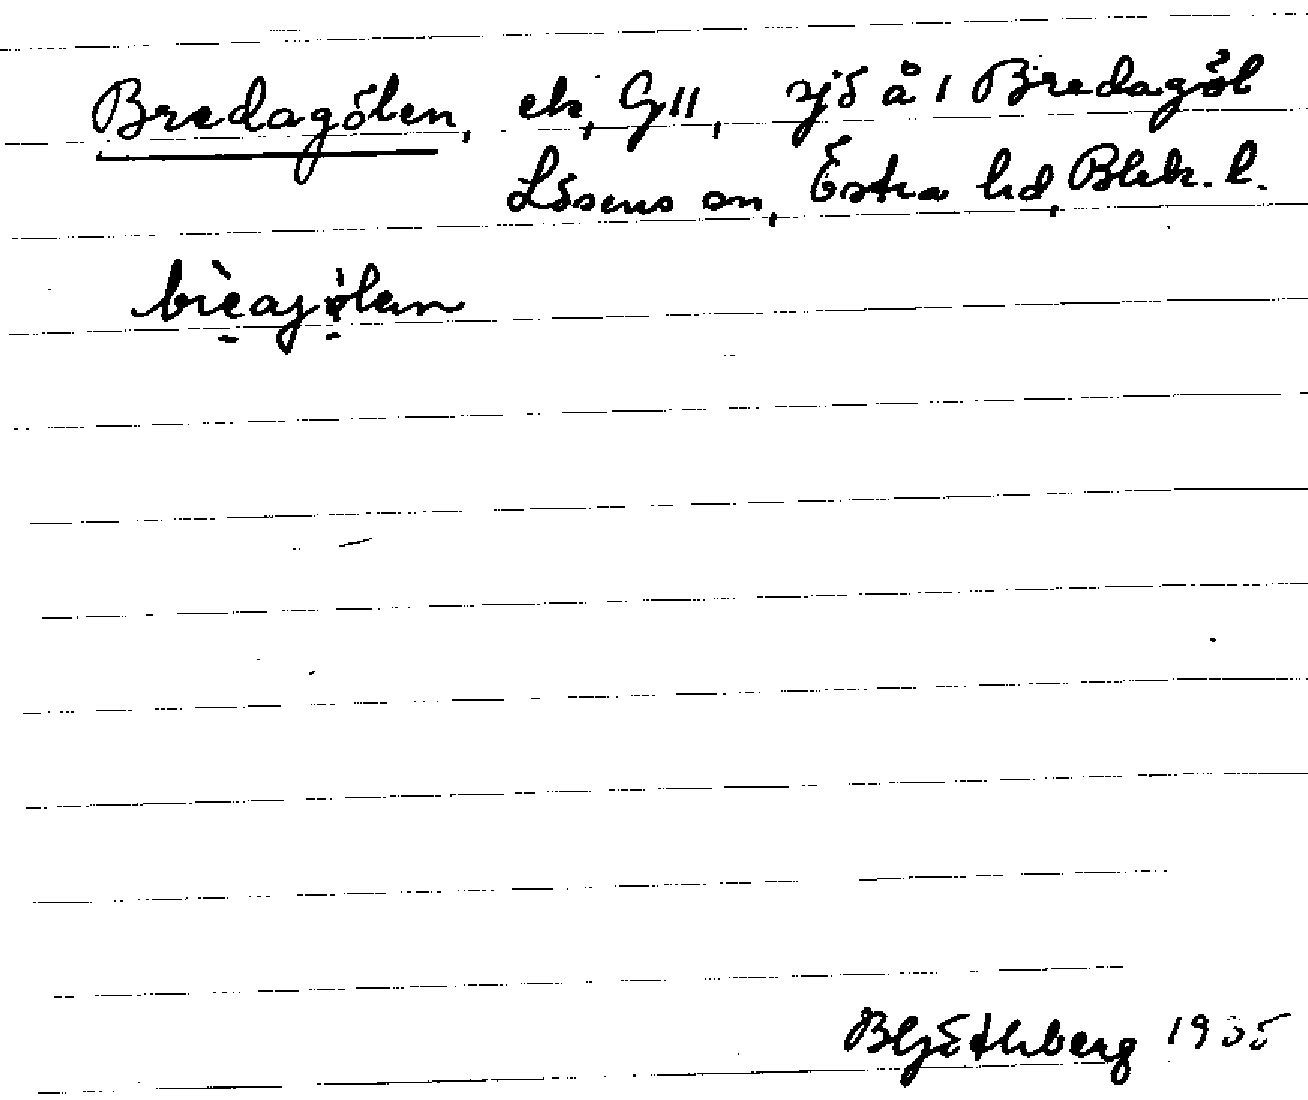 Bredagölen, ek, G11, sjö å 1 Bredagöl
Lösens sn, Östra hd, Blek. l.
brèajölen
BGöthberg 1935